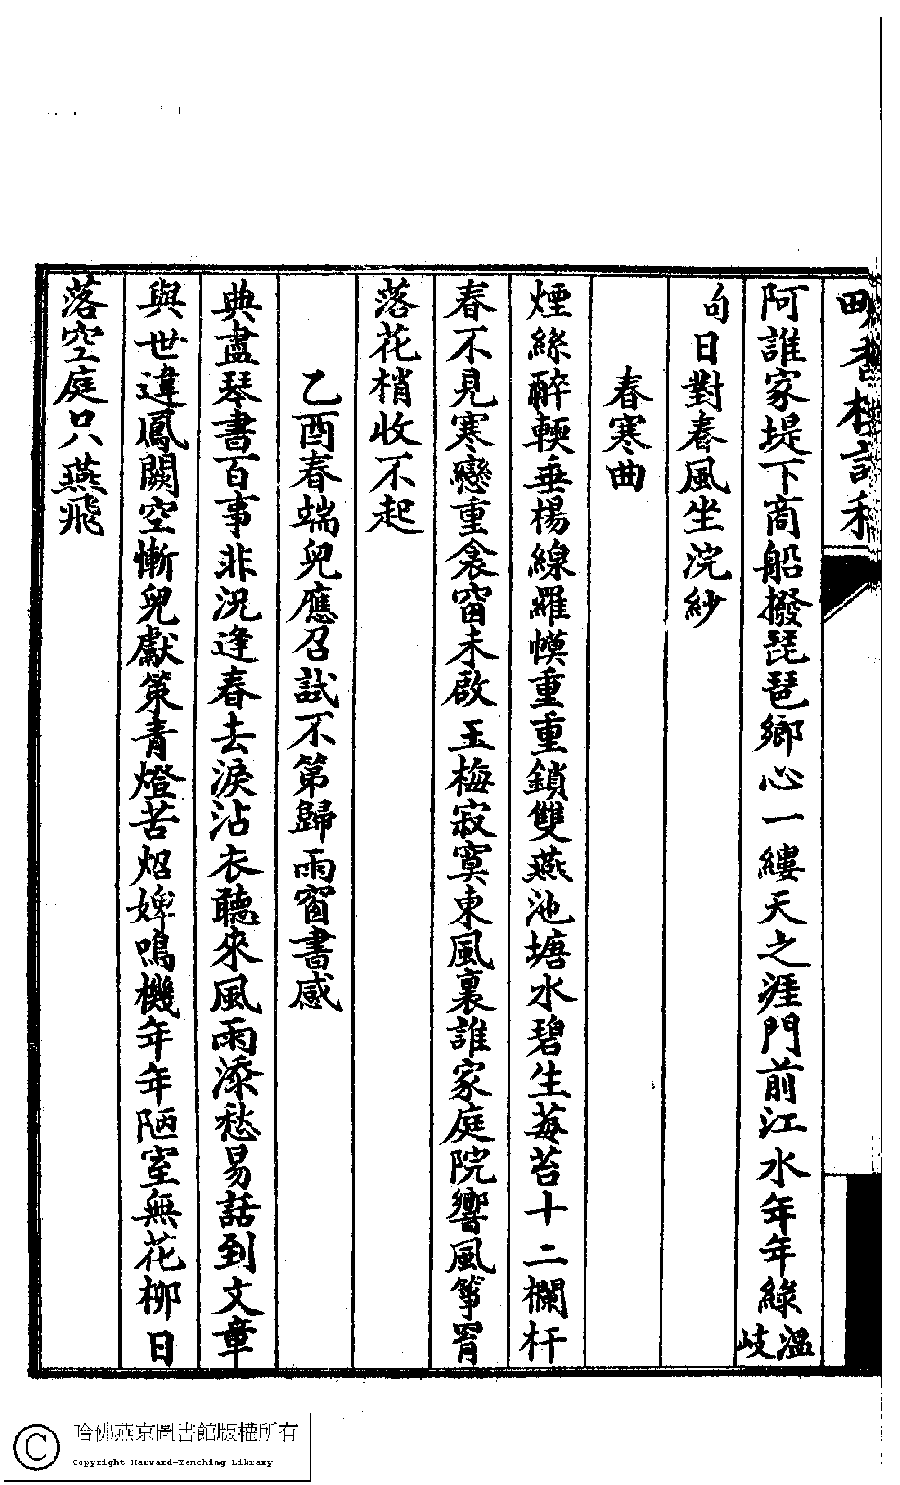 阿誰家堤下商船撥琵琶鄉心一縷天之涯門前江水年年綠溫岐
句日對春風坐浣紗
春寒曲
煙絲醉輭垂楊線羅幙重重鎖雙燕池塘水碧生莓苔十二欄杆
春不見寒戀重衾窗未啟玉梅寂寞東風裏誰家庭院響風箏胥
落花梢收不起
乙酉春端兒應召試不第歸雨窗書感
典盡琴書百事非況逢春去淚沾衣聽來風雨添愁易話到文章
與世違鳳闕空慚兒獻策青燈苦炤婢鳴機年年陋室無花柳日
落空庭只燕飛
哈佛燕京圖書館版權所有
Copyright Harvard-Yenching Library